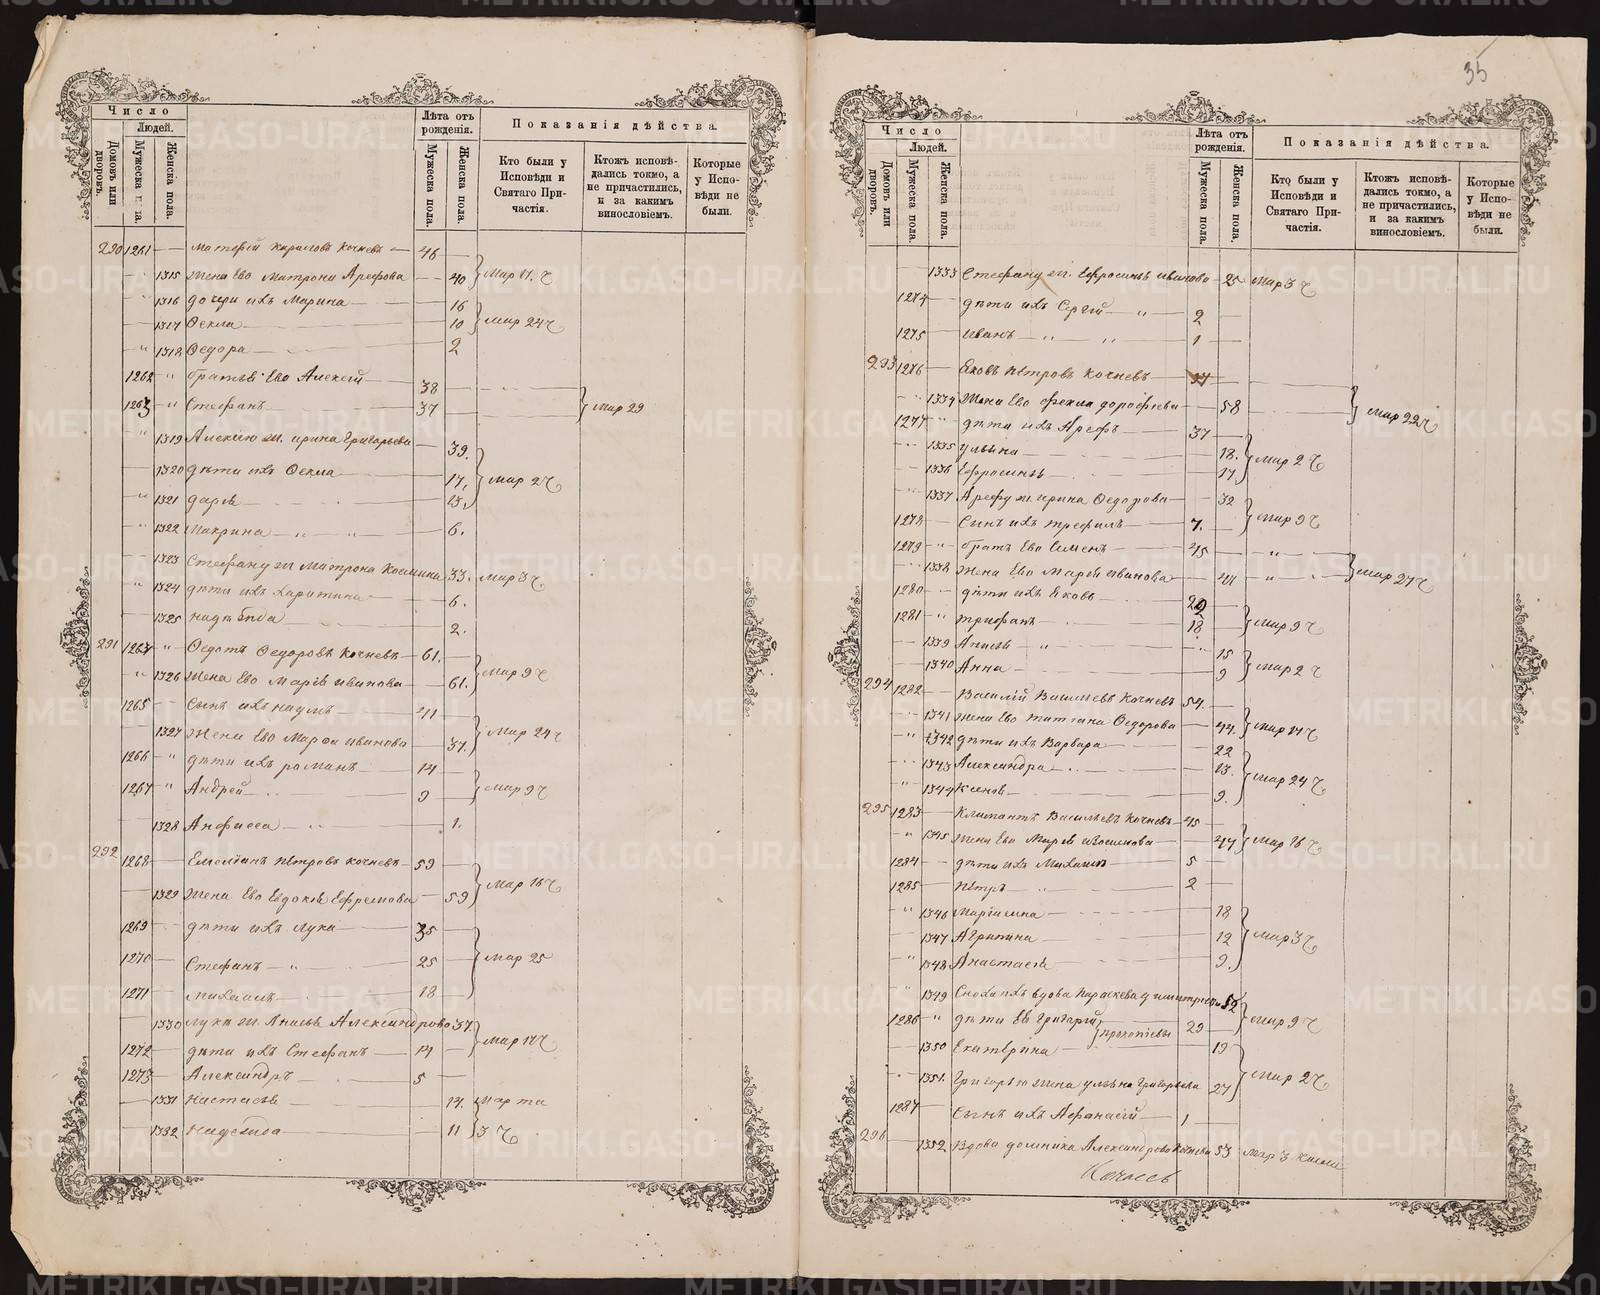 35
Число
Людей.
Домовъ или дворовъ.
Мужеска пола.
Женска пола.
Лѣта отъ рожденія.
Мужеска пола.
Женска пола.
Показанія дѣйства.
Кто были у Исповѣди и Святаго Причастія.
Ктожъ исповѣдались токмо, а не причастились, и за какимъ винословіемъ.
Которые у Исповѣди не были.
290 1261 Матѳей Кириловъ Кочневъ 46
1315 Жена Его Матрона Арефова 40 Мар 17. ч
1316 дочери ихъ Марина 16
1317 Ѳекла 10 Мар 24 ч
1318 Ѳедора 2
1262 братья Его Алексѣй 38
1263 Стефанъ 37 Мар 29
1319 Алексѣю ж. ирина Григорьева 39.
1320 дѣти ихъ Ѳекла 17, Мар 2 ч
1321 дарья 13,
1322 Макрина 6.
1323 Стефану ж Матрона Козмина 33. Мар 3 ч
1324 дѣти ихъ Харитина 6.
1325 надѣжда 2.
291 1264 Ѳедотъ Ѳедоровъ Кочневъ 61.
1326 Жена Его Марія иванова 61. Мар 9 ч
1265 Сынъ ихъ наумъ 41
1327 Жена Его Марѳа иванова 37. Мар 24 ч
1266 дѣти ихъ романъ 14
1267 Андрей 9 Мар 9 ч
1328 Анфисса 1.
292 1268 Емеліанъ Пѣтровъ Кочневъ 59
1329 Жена Его Евдокія Ефремова 59 Мар 16 ч
1269 дѣти ихъ Лука 35
1270 Стефанъ 25 Мар 25
1271 михаилъ 18
1330 Лукѣ ж. Анисья Александрова 37.
1272 дѣти ихъ Стефанъ 14 Мар 17 ч
1273 Александръ 5
1331 Настасья 14. Марта
1332 Надежда 11 3 ч
Число
Людей.
Домовъ или дворовъ.
Мужеска пола.
Женска пола.
Лѣта отъ рожденія.
Мужеска пола.
Женска пола.
Показанія дѣйства.
Кто были у Исповѣди и Святаго Причастія.
Ктожъ исповѣдались токмо, а не причастились, и за какимъ винословіемъ.
Которые у Исповѣди не были.
1333 Стефану ж. Ефросинья иванова 25 Мар 3 ч
1274 дѣти ихъ Сергій 2
1275 иванъ 1
293 1276 Яковъ Пѣтровъ Кочневъ
1334 Жена Его Фекла дорофеева 58 Мар 22 ч
1277 дѣти ихъ Арефъ 37
1335 ульяна 18. Мар 2 ч
1336 Ефросинья 17
1337 Арефу ж. ирина Ѳедорова 32
1278 Сынъ ихъ трефилъ 7. Мар 9 ч
1279 братъ Его Семенъ 45
1338 Жена Его Марія иванова 44 Мар 27 ч
1280 дѣти ихъ Яковъ
1281 трифанъ 18. Мар 9 ч
1339 Анисья 15
1340 Анна 9 Мар 2 ч
294 1282 Василій Васильевъ Кочневъ 54.
1341 Жена Его татіана Ѳедорова 44. Мар 17 ч
1342 дѣти ихъ Варвара 22
1343 Александра 13. Мар 24 ч
1344 Ксенія 9.
295 1283 Климантъ Васильевъ Кочневъ 45
1345 Жена Его Марія 44 Мар 16 ч
1284 дѣти ихъ Михаилъ 5
1285 Пѣтръ 2
1346 Маріамна 18
1347 Агрипина 12 Мар 3 ч
1348 Анастасія 9.
1349 Сноха ихъ вдова Параскева димитріева 52
1286 дѣти Ея Григорій Прокопіевы 29 Мар 9 ч
1350 Екатерина 19
1351. Григорію жена ульяна Григорьева 27 Мар 2 ч
1287 Сынъ ихъ Афанасій 1
296 1352 Вдова домника Александрова Кочнева 53 Мар 3